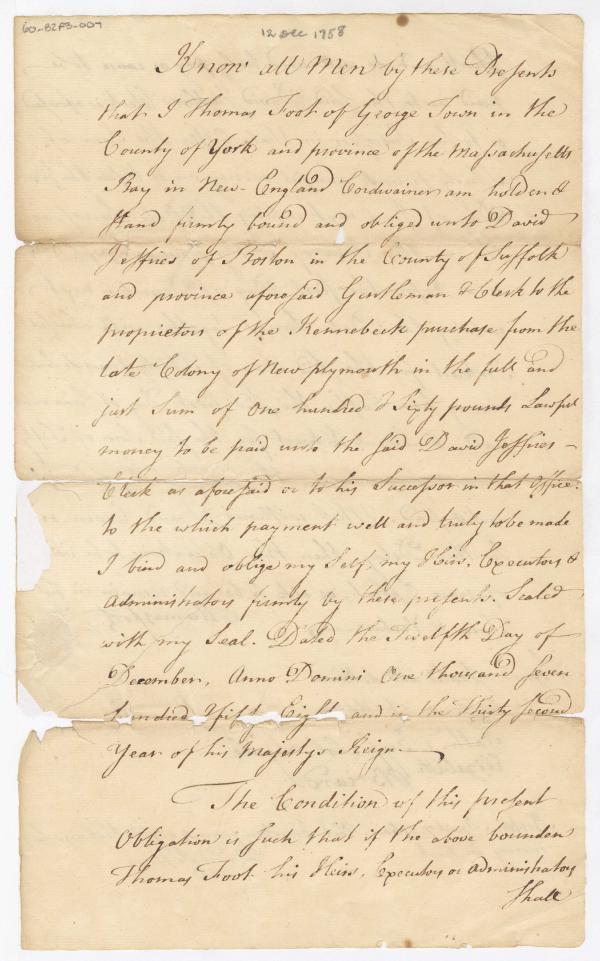 60-B2F3-007
12 Dec 1758
Know all Men by these Presents
that I Thomas Foot of George Town in the
County of York and province of the Massachusetts
Bay in New-England Cordwainer am holden &
Stand firmly bound and obliged unto David
Jeffries of Boston in the County of Suffolk
and province aforesaid Gentleman & Clerk to the
proprietors of the Kennebeck purchase from the
late Colony of New plymouth in the full and
just Sum of one hundred & Sixty pounds Lawful
money to be paid unto the said David Jeffries -
Clerk as aforesaid or to his Successor in that Office:
to the which payment well and truly to be made
I bind and oblige my Self, my Heirs, Executors &
Administrators firmly by these presents. Sealed
with my Seal. Dated the Twelfth Day of
December, Anno Domini One thousand seven
hundred & fifty Eight and in the Thirty second
Year of his Majestys Reign.
The Condition of this present
Obligation is such that if the above bounden
Thomas Foot his Heirs, Executors or Administrators
Shall